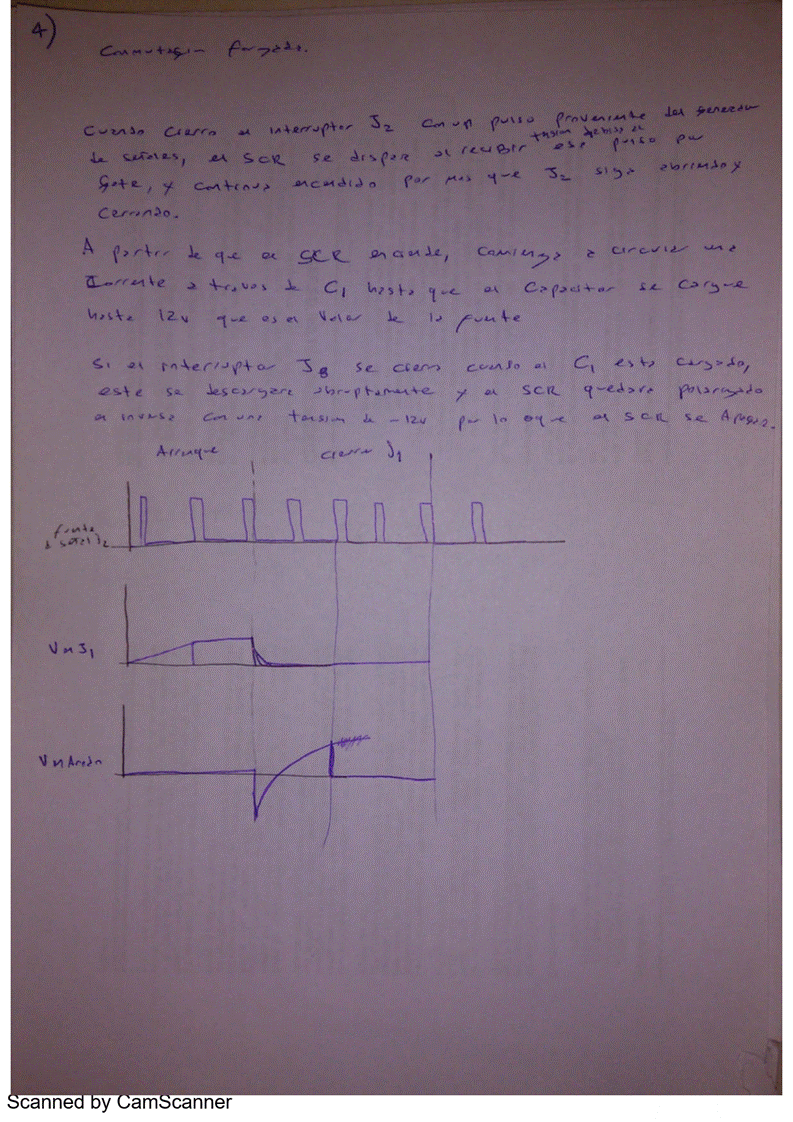 4)
Conmutación forzada.
Cuando cierro el interruptor J2 con un pulso proveniente del generador
tension debido al
de señales, el SCR se dispara al recibir ese pulso por
Gate, y continua encendido por mas que J2 siga abriendo y
cerrando.
A partir de que el SCR enciende, comienza a circular una
Corriente a traves de C1 hasta que el Capacitor se cargue
hasta 12v que es el Valor de la fuente
Si el interruptor J8 se cierra cuando el C1 esta cargado,
este se descargara abruptamente y el SCR quedara polarizado
en inversa con una tension de -12v por lo que el SCR se Apaga.
Arranque cierro J1
fuente
J2
V en J1
V en Anodo
Scanned by CamScanner